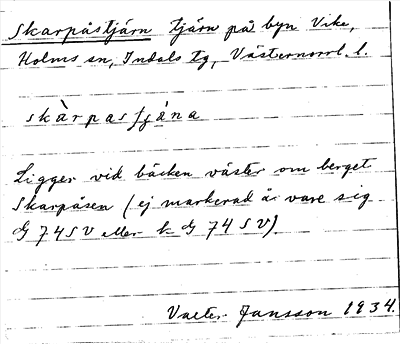 Skarpåstjärn tjärn på byn Vike,
Holms sn, Indals tg, Västernorrl. l.
skàrpasʃjána
Ligger vid bäcken väster om berget
Skarpåsen (ej markerad är vare sig
G 74 SV eller k G 74 SV).
Valter Jansson 1934.